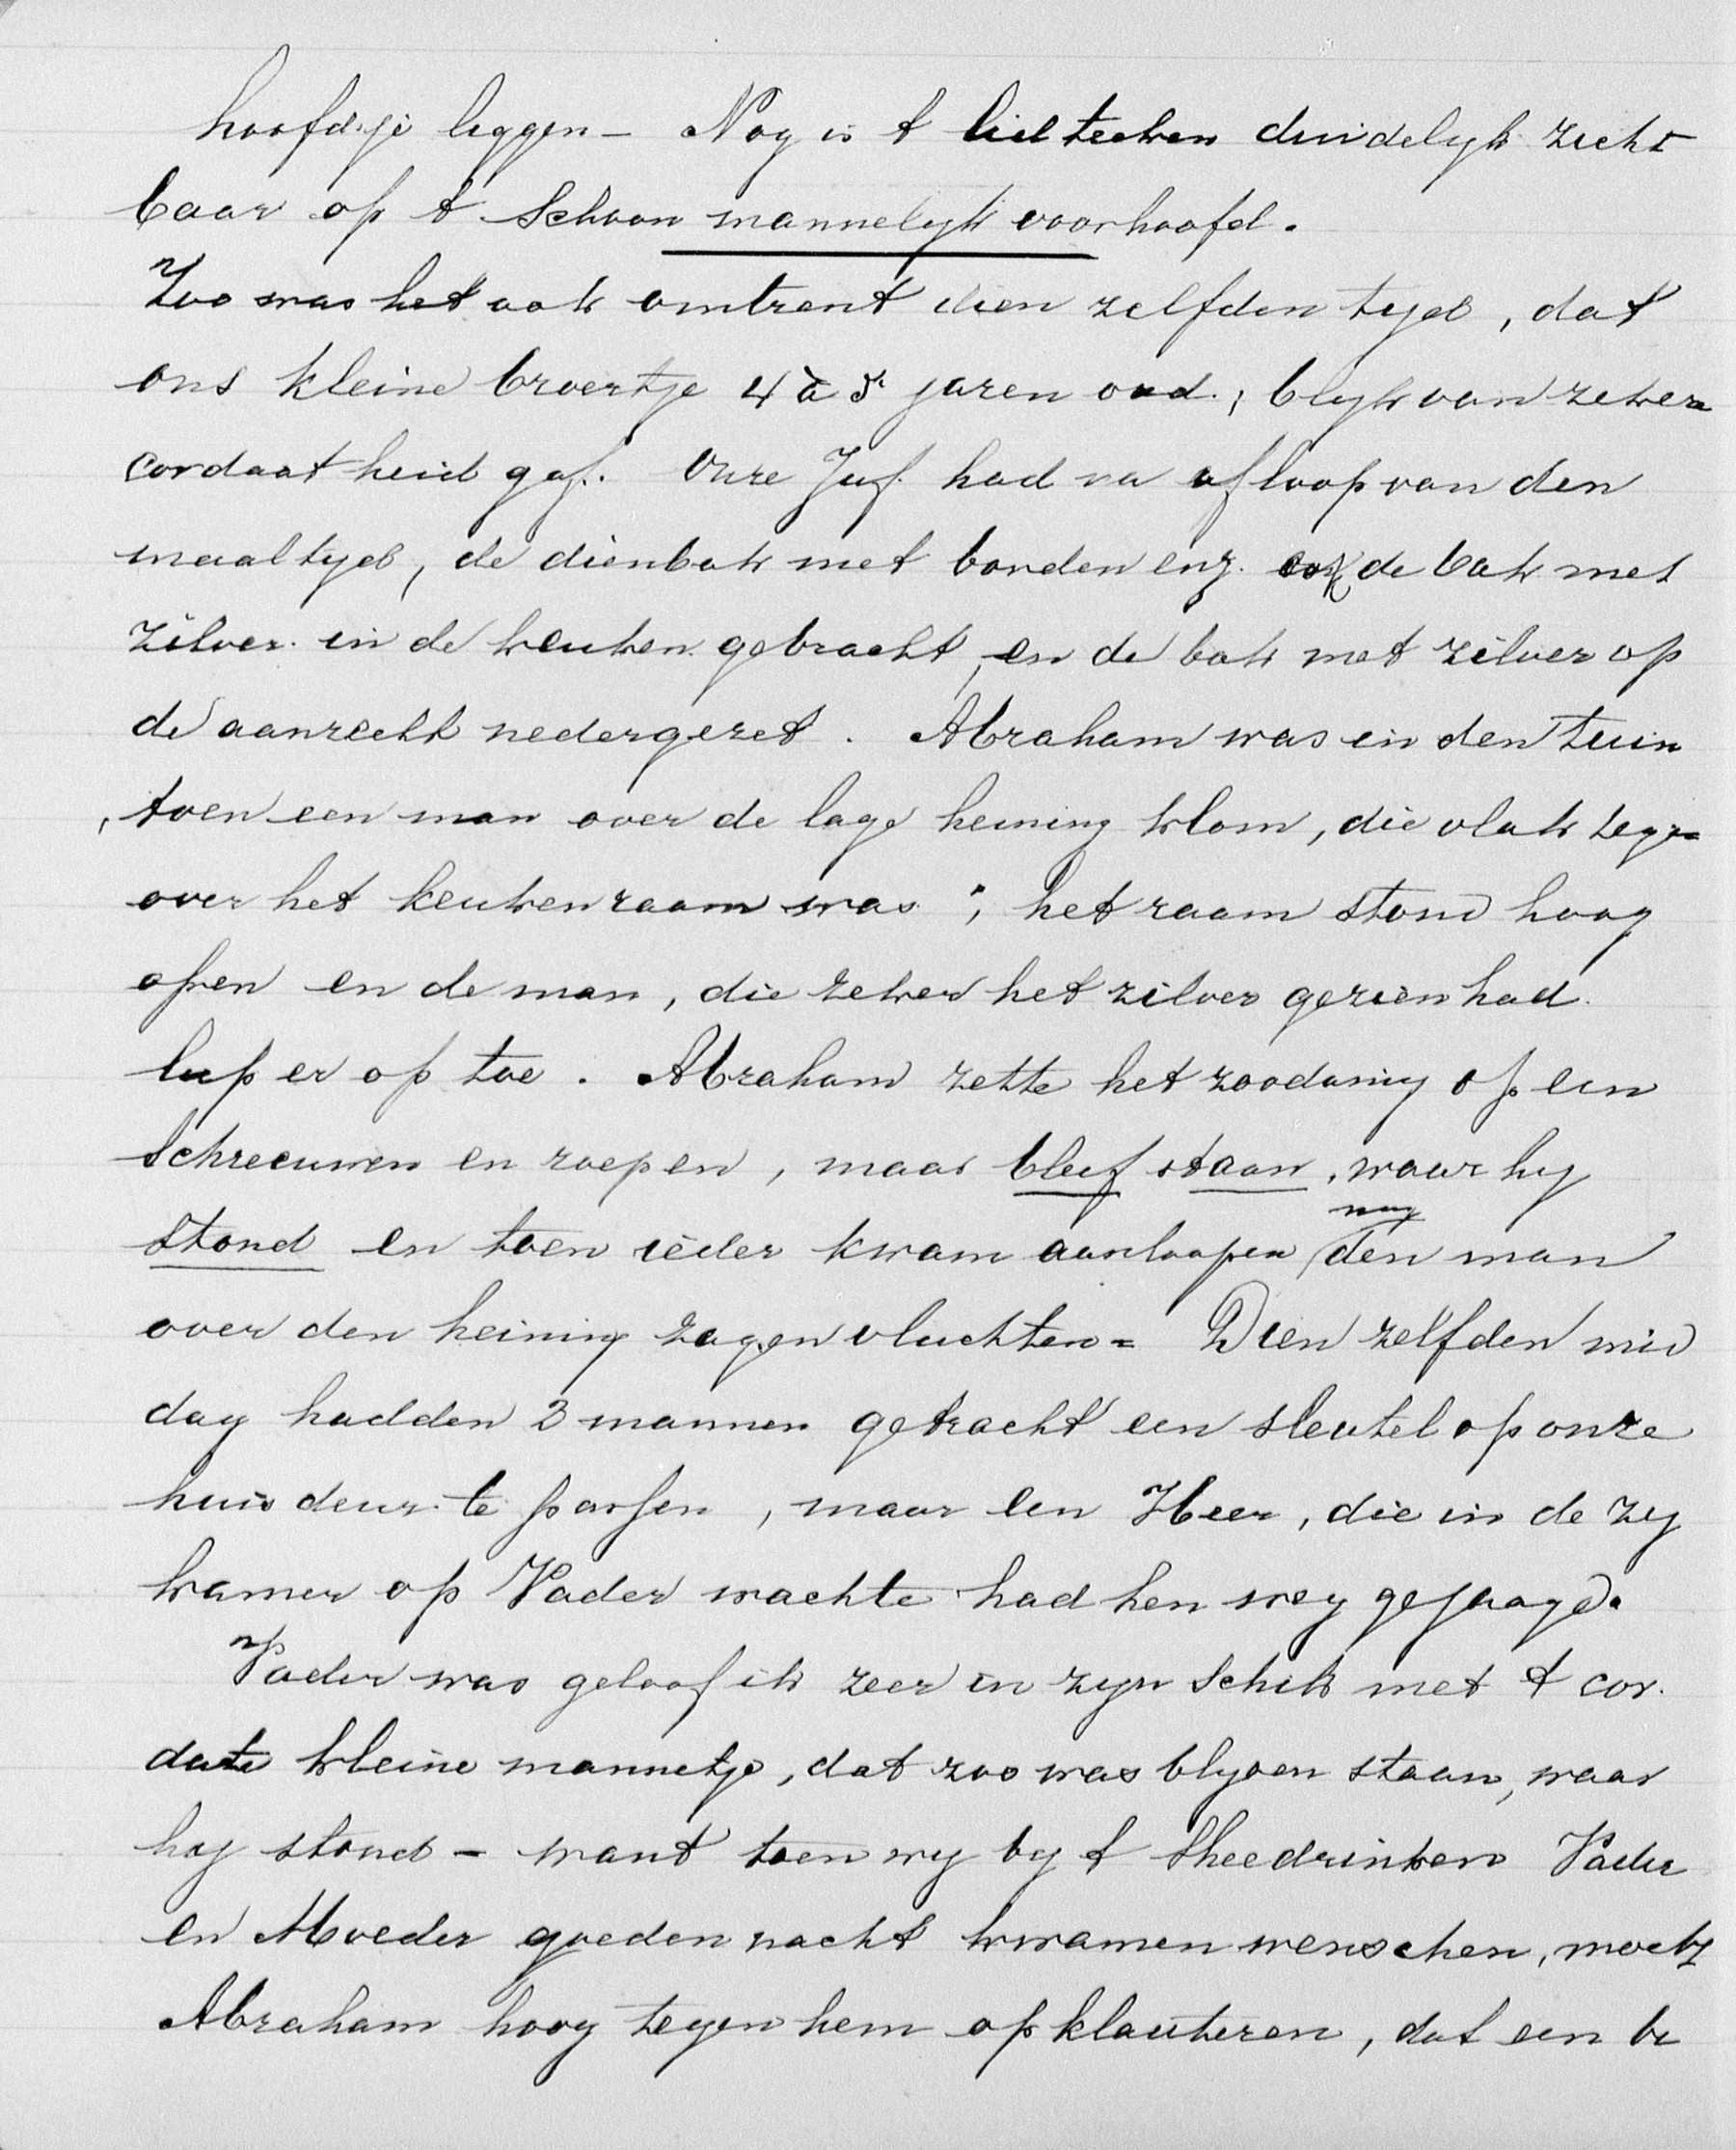 hoofdje leggen - Nog is t lidteeken duidelyk zicht
baar op t schoon mannelyk voorhoofd.
Zoo was het ook omtrent dien zelfden tyd, dat
ons kleine broertje 4 à 5 jaren oud, blyk van zekere
cordaatheid gaf. Onze Juf. had na afloop van den
maaltyd, de dienbak met borden enz. ook de bak met
zilver in de keuken gebracht, en de bak met zilver op
de aanrecht nedergezet. Abraham was in den tuin
, toen een man over de lage heining klom, die vlak tegen=
over het keukenraam was; het raam stond hoog
open en de man, die zeker het zilver gezien had
liep er op toe. Abraham zette het zoodanig op een
schreeuwen en roepen, maar bleef staan, waar hy
stond en toen ieder kwam aanloopen nog den man
over den heining zagen vluchten = Dien zelfden mid
dag hadden 2 mannen getracht een sleutel op onze
huisdeur te passen, maar een Heer, die in de zy
kamer op Vader wachte had hen weg gejaagd.
Vader was geloof ik zeer in zyn schik met t cor.
date kleine mannetje, dat zoo was blyven staan, waar
hy stond - want toen wy by t theedrinken Vader
en Moeder goeden nacht kwamen wenschen, mocht
Abraham hoog tegen hem opklauteren, dat een be